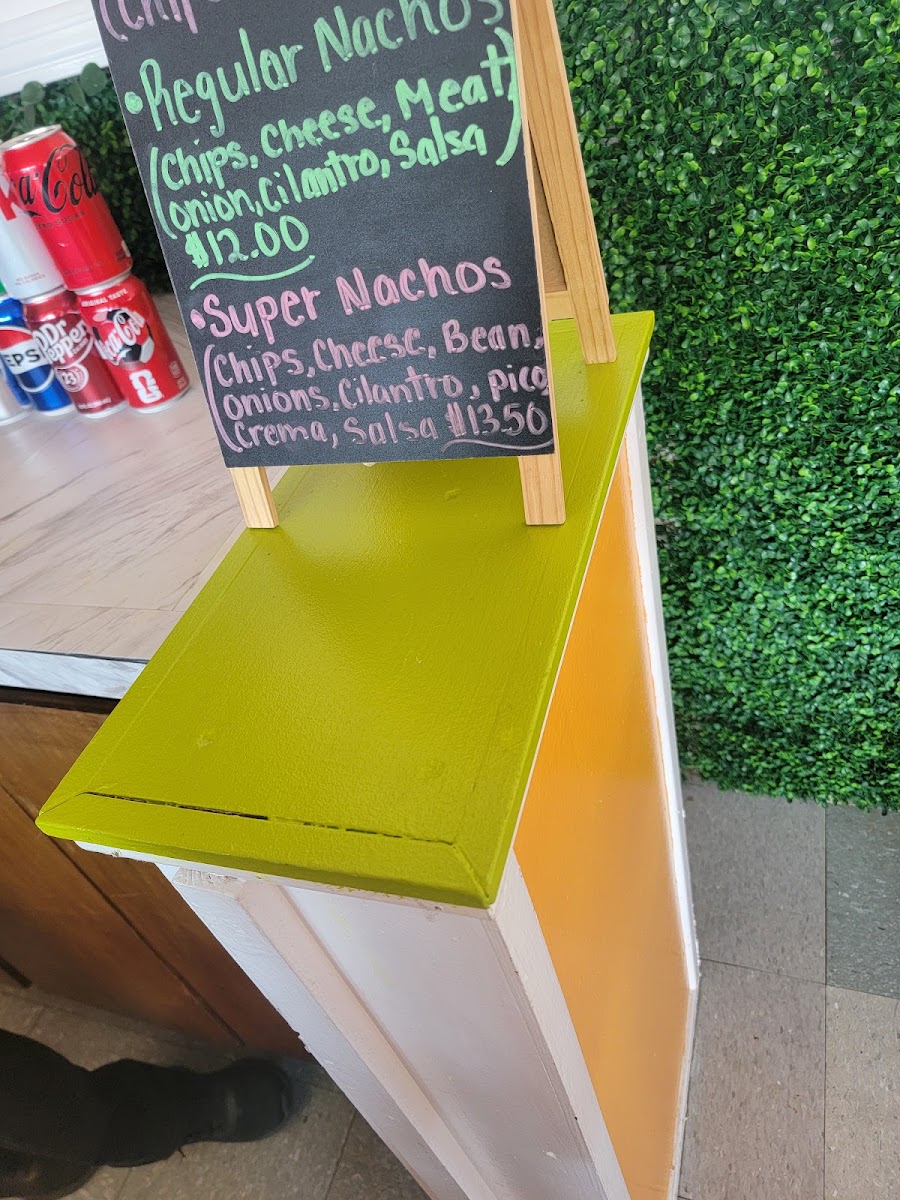 (Chip
•Regular Nachos
(Chips, Cheese, Meat)
onion, Cilantro, Salsa)
$12.00
•Super Nachos
(Chips, Cheese, Bean,
onions, Cilantro, pico
Crema, Salsa $13.50
Coca-Cola
ORIGINAL TASTE
Coca-Cola
Dr Pepper
23
PEPS